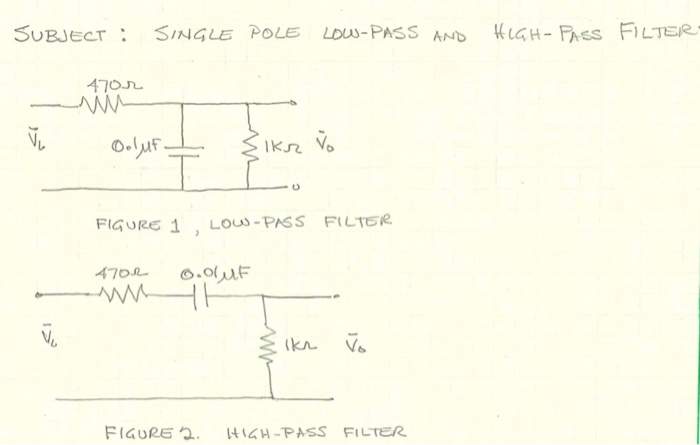 SUBJECT : SINGLE POLE LOW-PASS AND HIGH-PASS FILTER
470Ω
V̄i 0.1µF 1KΩ V̄o
FIGURE 1 , LOW-PASS FILTER
470Ω 0.01µF
V̄i 1KΩ V̄o
FIGURE 2. HIGH-PASS FILTER